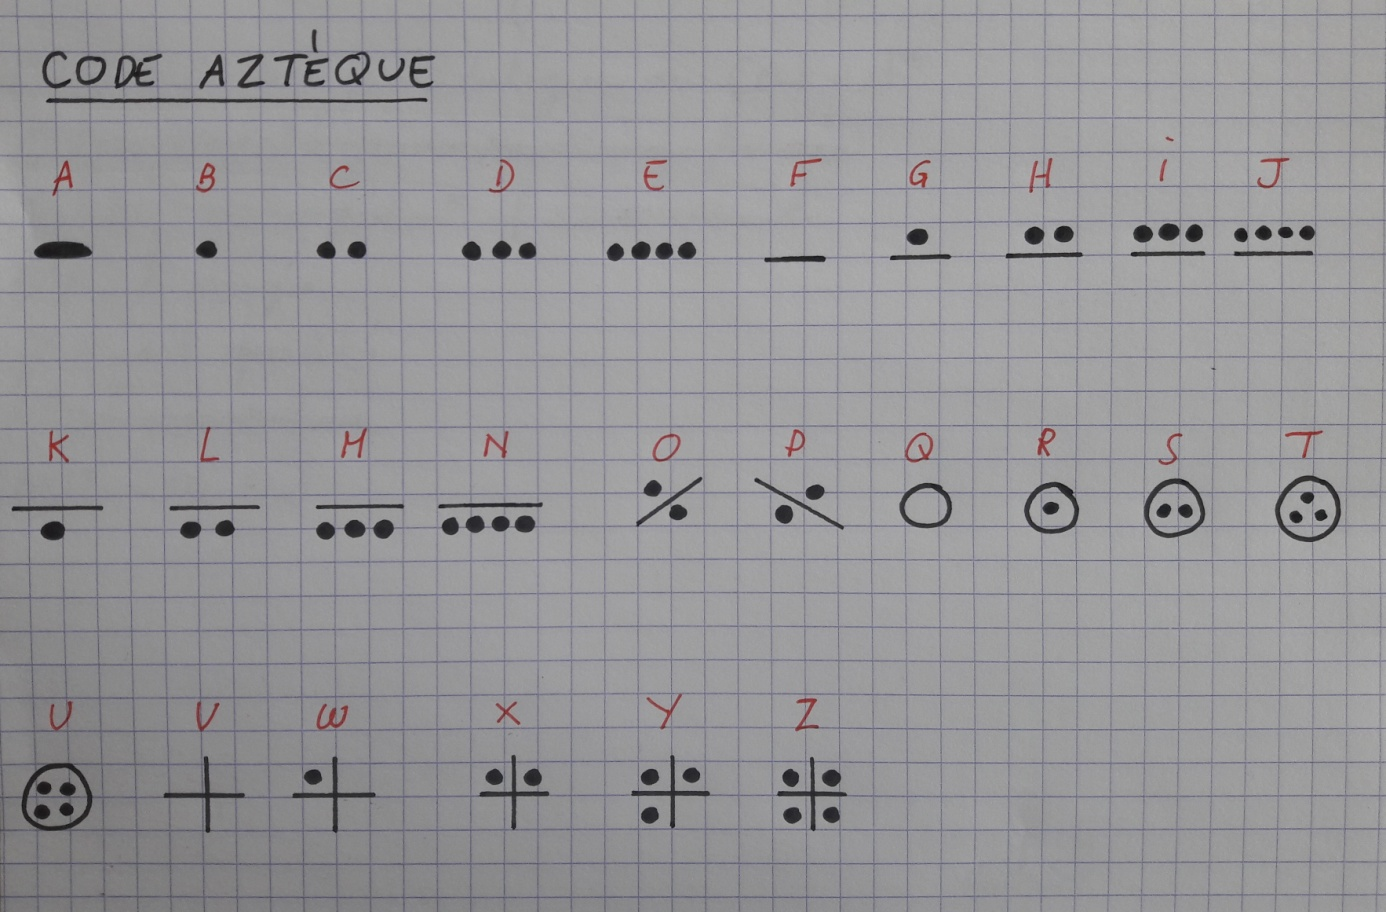 CODE AZTÈQUE
A B C D E F G H i J
K L M N O P Q R S T
U V W X Y Z